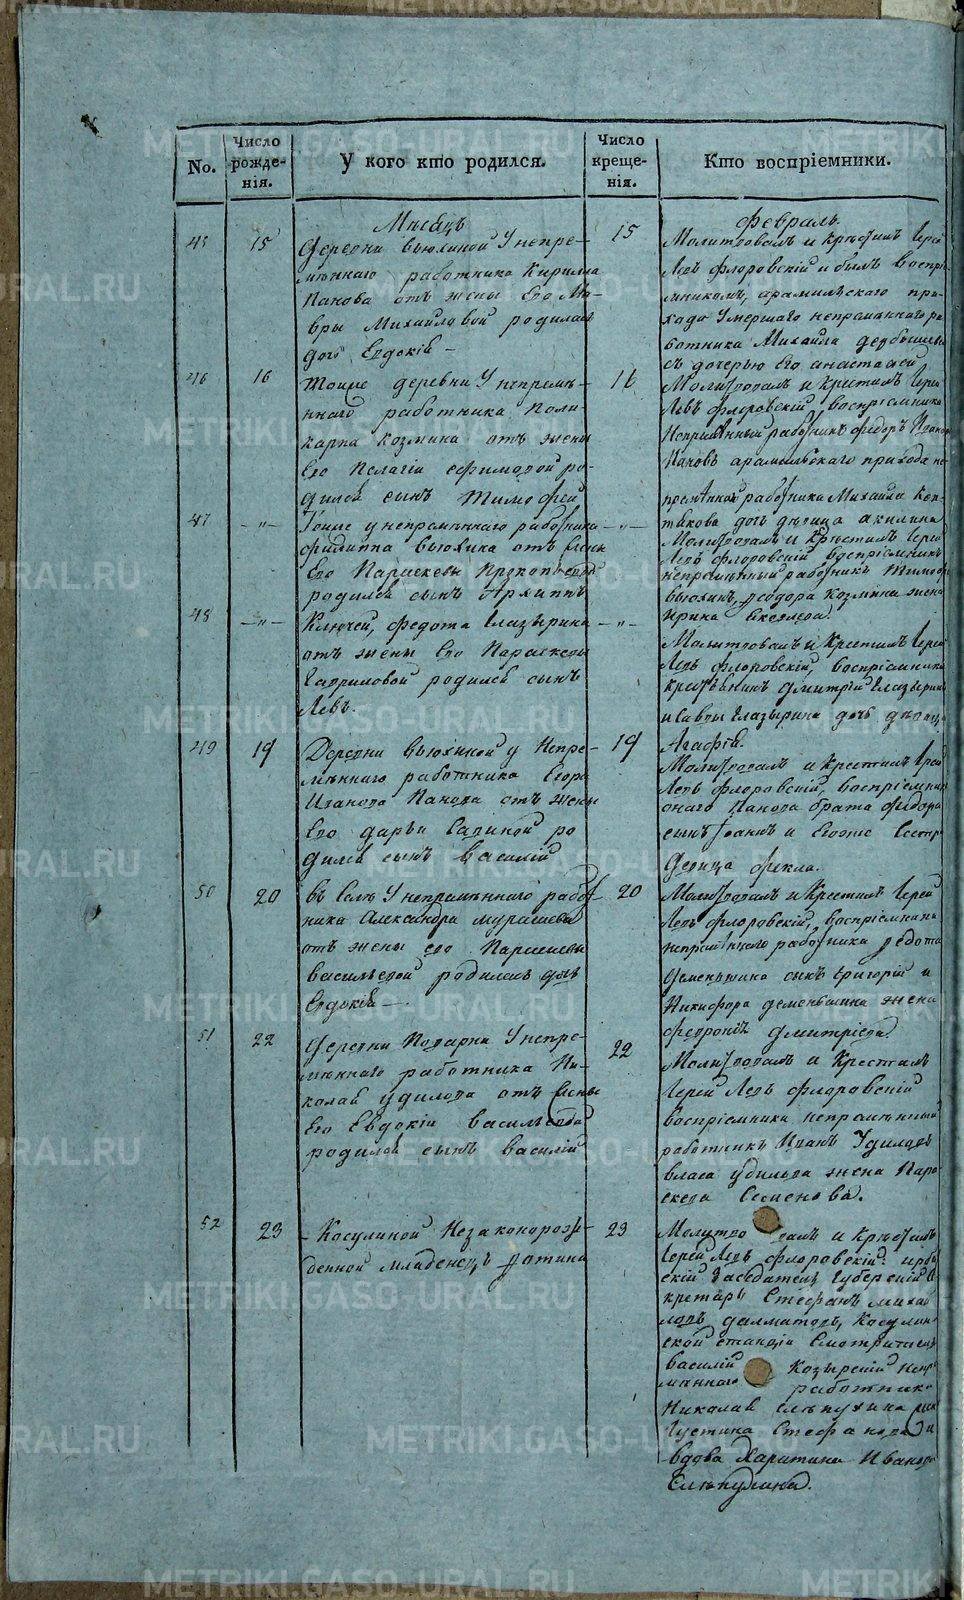 No.
Число рожде-нія.
У кого кто родился.
Число креще-нія.
Кто воспріемники.
Месяцъ
февраль
45
15
Деревни Вьюхиной У непре-
мѣннаго работника Кирилла
Панова отъ жены Его Ма-
вры Михайловой родилась
дочь Евдокія —
15
Молитвовалъ и крестилъ Іерей
Левъ флоровскій и былъ воспрі-
емникомъ, арамильскаго при-
хода Умершаго непременнаго ра-
ботника Михайла
съ дочерью Его анастасіей
46
16
Тоеже деревни У непремѣ-
ннаго работника Поли-
карпа Козмина отъ жены
Его Пелагіи Ефимовой ро-
дился сынъ Тимофей
16
Молитвовалъ и крестилъ Іерей
Левъ флоровскій воспріемники
Непремѣнный работникъ федоръ Ивановъ
Пановъ арамильскаго прихода не-
премѣннаго работника Михайла
дочь девица акилина
47
—„—
Тоеже у непремѣннаго работника
филиппа Вьюхина отъ жены
Его Параскевы Прокопьевой
родился сынъ Архиппъ
—„—
Молитвовалъ и крестилъ Іерей
Левъ флоровскій воспріемникъ
непремѣнный работникъ Тимофей
Вьюхинъ, федора Козмина жена
Ирина
48
—„—
Ключей, федота Глазырина
отъ жены Его Параскевы
Гавриловой родился сынъ
Левъ.
—„—
Молитвовалъ и Крестилъ Іерей
Левъ флоровскій, воспріемники
крестьянинъ Дмитрій Глазыринъ
и Савы Глазырина дочь девица
Агафія.
49
19
Деревни Вьюхиной у Непре-
мѣннаго работника Егора
Иванова Панова отъ жены
Его дарьи Савиной ро
дился сынъ Василій
19
Молитвовалъ и Крестилъ Іерей
Левъ флоровскій, воспріемники
онаго Панова брата федора
сынъ Іоаннъ и Егоже Сестра
Девица фекла.
50
20
Въ Селѣ У непремѣннаго рабо-
тника Александра
отъ жены его Параскевы
Васильевой родилась дочь
Евдокія —.
20
Молитвовалъ и Крестилъ Іерей
Левъ флоровскій, воспріемники
непремѣннаго работника федота
Деменьшина сынъ Григорій и
Никифора деменьшина жена
февронія Дмитріева.
51
22
Деревни Поварни У непре-
мѣннаго работника Ни-
колая удилова отъ жены
Его Евдокіи Васильевой
родился сынъ Василій
22
Молитвовалъ и Крестилъ
Іерей Левъ флоровскій
воспріемники непремѣнный
работникъ Иванъ Удиловъ
Власа удилова жена Пара-
скева Семенова.
52
23
— Косулиной Незаконорож-
денной младенецъ фотина
23
Молитвовалъ и крестилъ
Іерей Левъ флоровскій:
скій Заседатель Губернскій Се-
кретарь Стефанъ Михай-
ловъ далматовъ, Косулин-
ской станціи Смотритель
Василій Козырскій Непре-
мѣннаго работника
Николая Слѣпухина жена
Густина Стефанова и
вдова Харитина Иванова
Слѣпухина.
METRIKI.GASO-URAL.RU